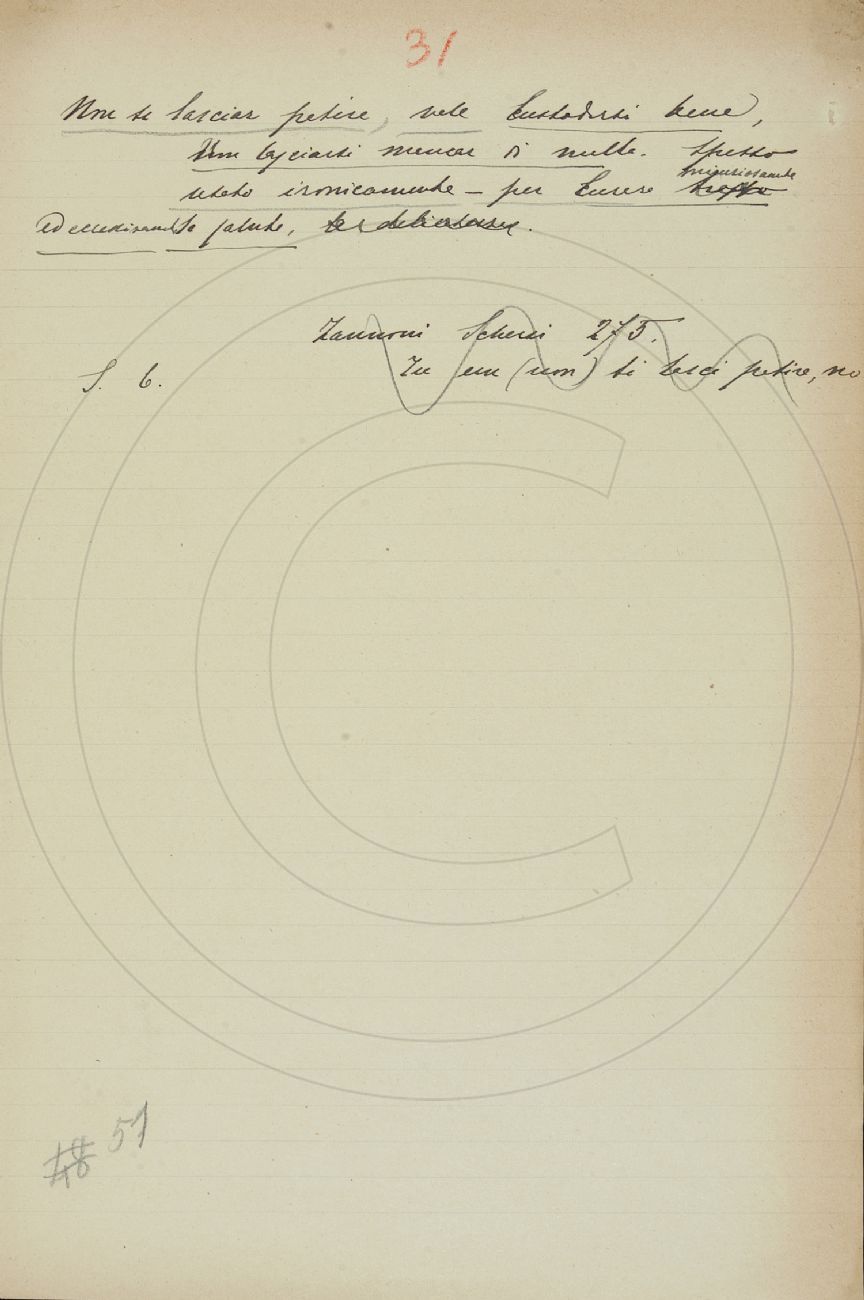 31
Non si lasciar patire, vale Custodirsi bene,
Non lasciarsi mancar di nulla. Spesso
usato ironicamente – per Curare minuziosamente
ed eccessivamente la salute,
Zannoni Scherzi 275.
S. C. Tu un (non) ti lasci patire, no
51